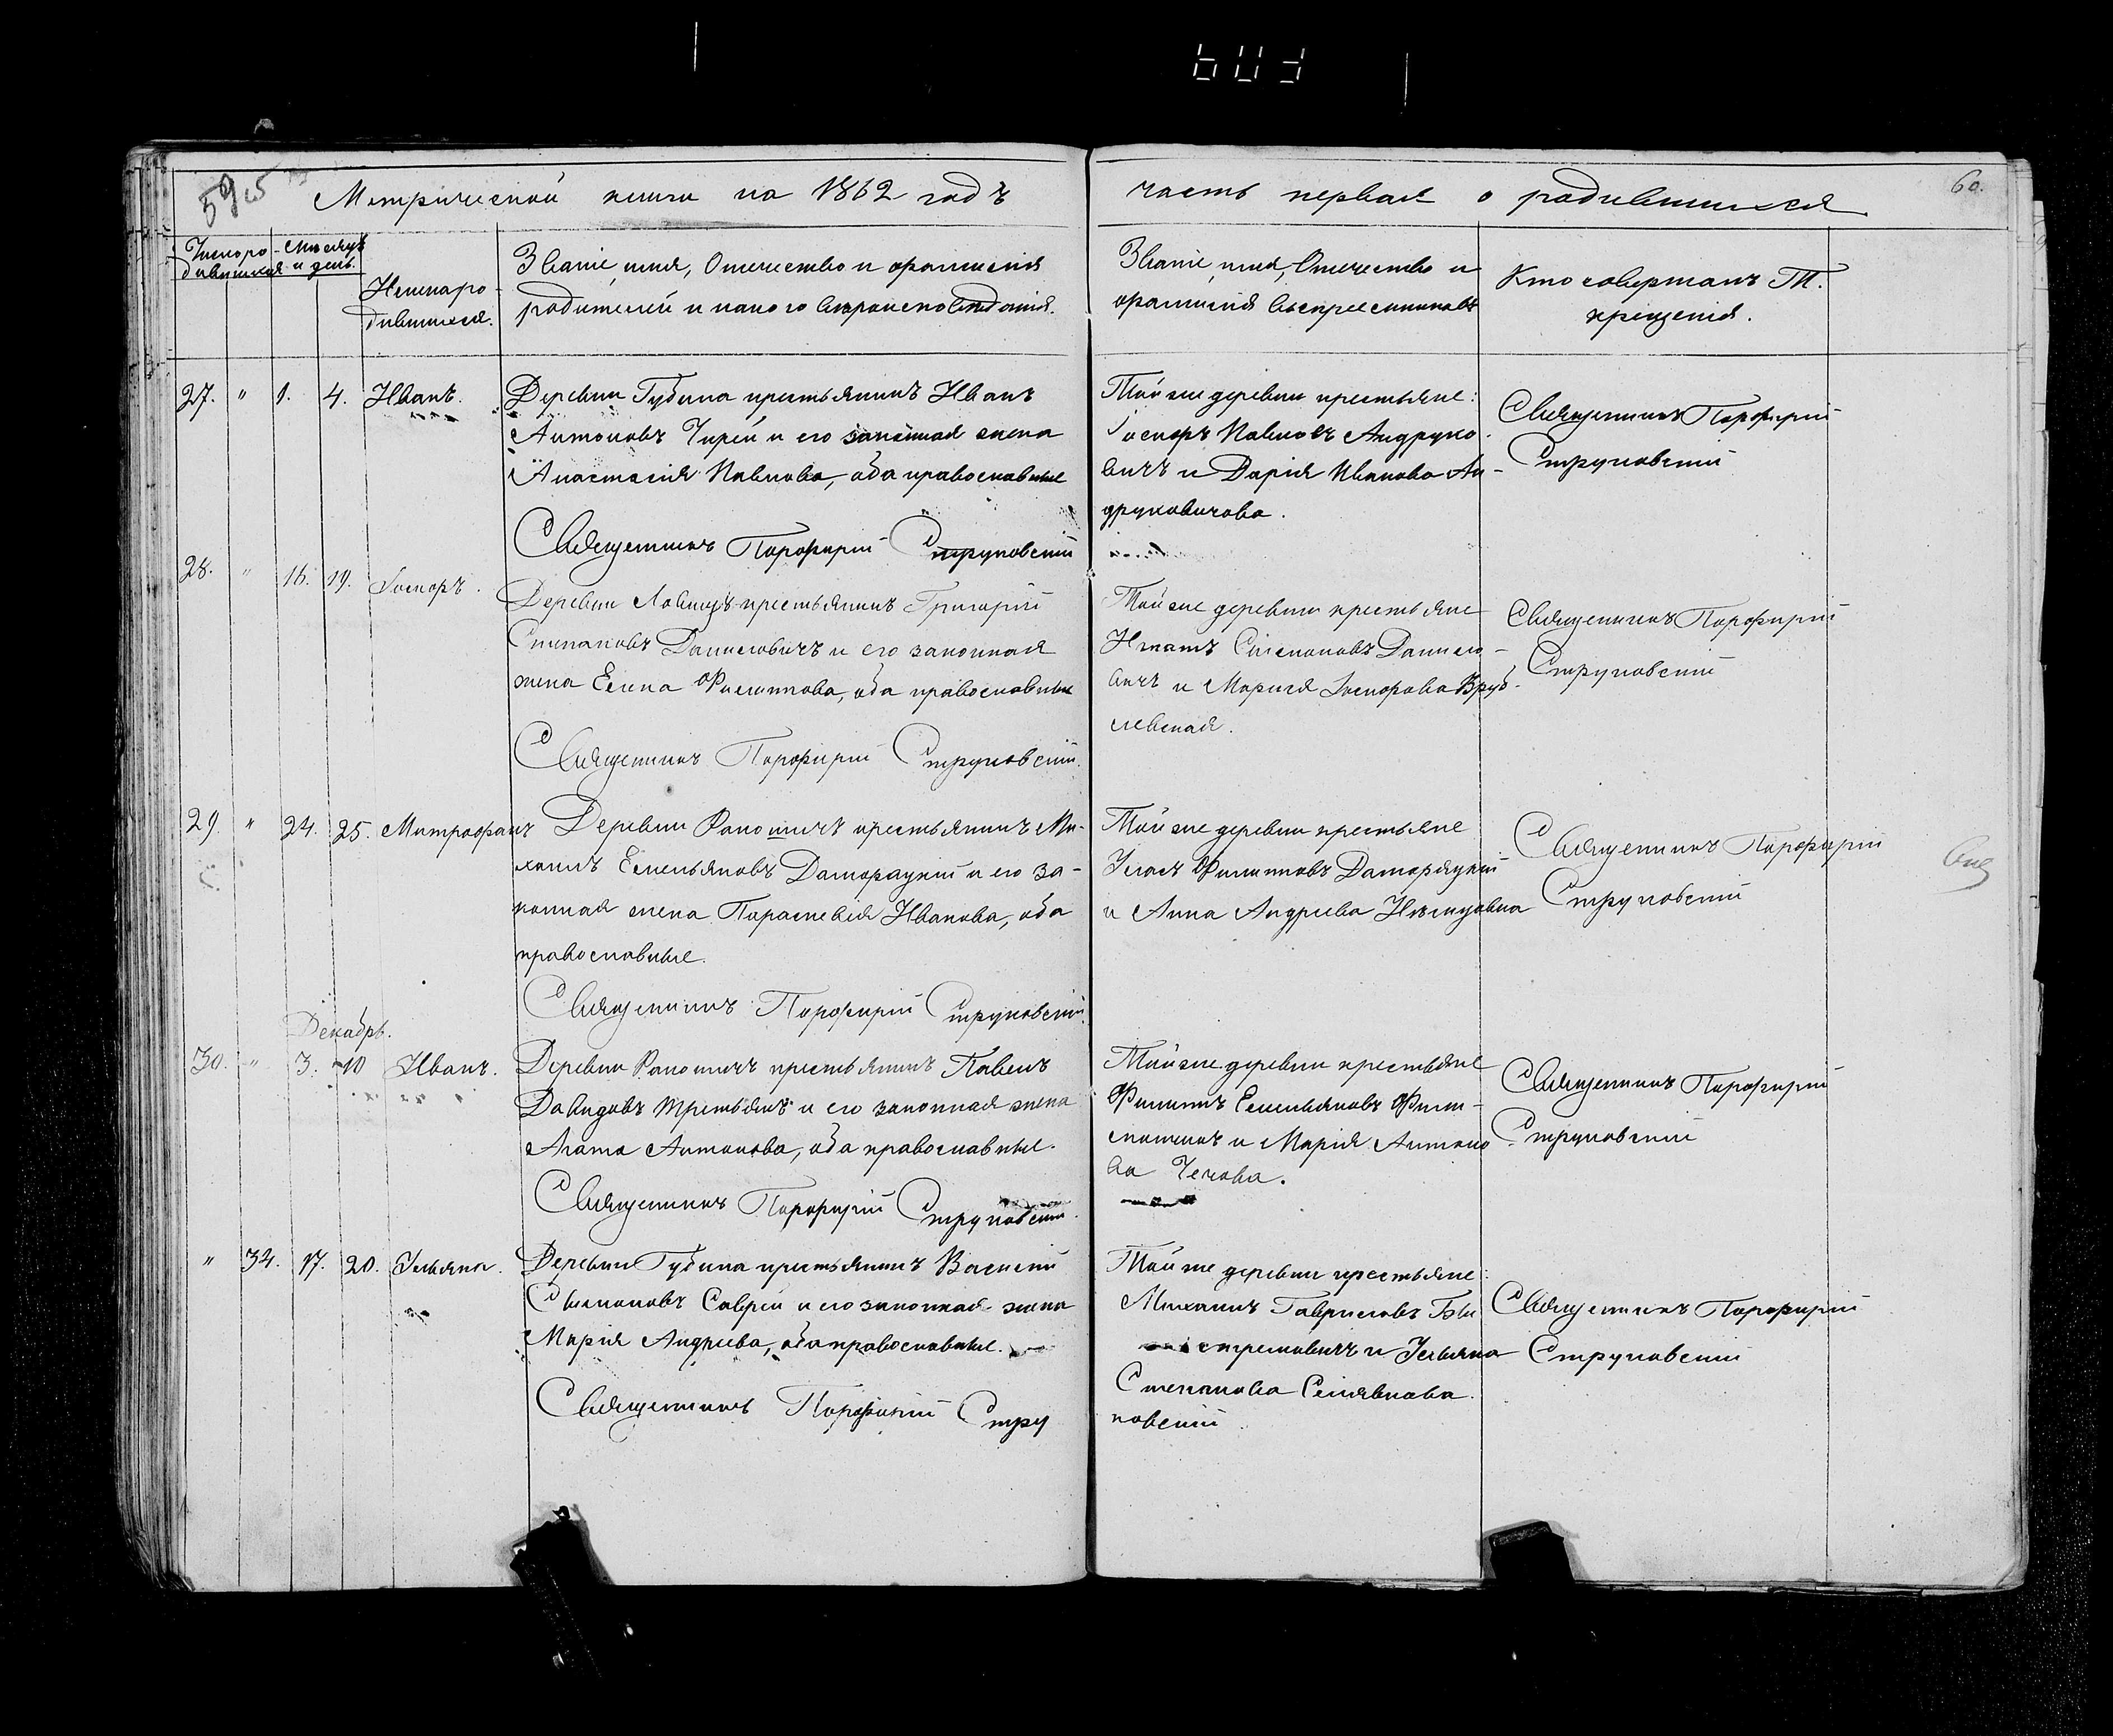 595
Метрической книги на 1862 годъ
часть первая о родившихся
60.
Число ро-
дившихся
Месяцъ
и день.
Имена ро-
дившихся.
Званіе, имя, Отечество и фамилія
родителей и какого вѣроисповѣданія.
Званіе, имя, Отечество и
фамилія воспреемниковъ
Кто совершалъ Т.
крещенія.
27. " 1. 4. Иванъ.
Деревни Губина крестьянинъ Иванъ
Антоновъ Чирей и его законная жена
Анастасія Павлова, оба православные
Священникъ Порфирій Струковскій
Той же деревни крестьяне:
Іосифъ Павловъ Андруко-
вичъ и Дарія Иванова Ан-
друковичова.
Священникъ Порфирій
Струковскій
28. " 16. 19. Іосифъ.
Деревни Ловищъ крестьянинъ Григорій
Степановъ Даниловичъ и его законная
жена Елена Филиппова, оба православные
Священникъ Порфирій Струковскій.
Той же деревни крестьяне
Игнатъ Симеоновъ Данило-
вичъ и Марися Іосифова Вруб-
левская.
Священникъ Порфирій
Струковскій
29. " 24. 25. Митрофанъ
Деревни Рапошичъ крестьянинъ Ми-
хаилъ Емельяновъ Даморацкій и его за-
конная жена Параскевія Иванова, оба
православные.
Священникъ Порфирій Струковскій.
Той же деревни крестьяне
Уласъ Филипповъ Даморацкій
и Анна Андреева
Священникъ Порфирій
Струковскій
Декабрь.
30. " 3. 10 Иванъ.
Деревни Рапошичъ крестьянинъ Павелъ
Давидовъ Третьякъ и его законная жена
Агата Антонова, оба православные.
Священникъ Порфирій Струковскій.
Той же деревни крестьяне
Филиппъ Емельяновъ
и Марія Антоно
ва Чехова.
Священникъ Порфирій
Струковскій
" 34. 17. 20. Ульяна.
Деревни Губина крестьянинъ Василій
Симоновъ Саврей и его законная жена
Марія Андреева, оба православные.
Священникъ Порфирій Стру
Той же деревни крестьяне:
Михаилъ Гавриловъ Бы
стремовичъ и Ульяна
Степанова
ковскій
Священникъ Порфирій
Струковскій